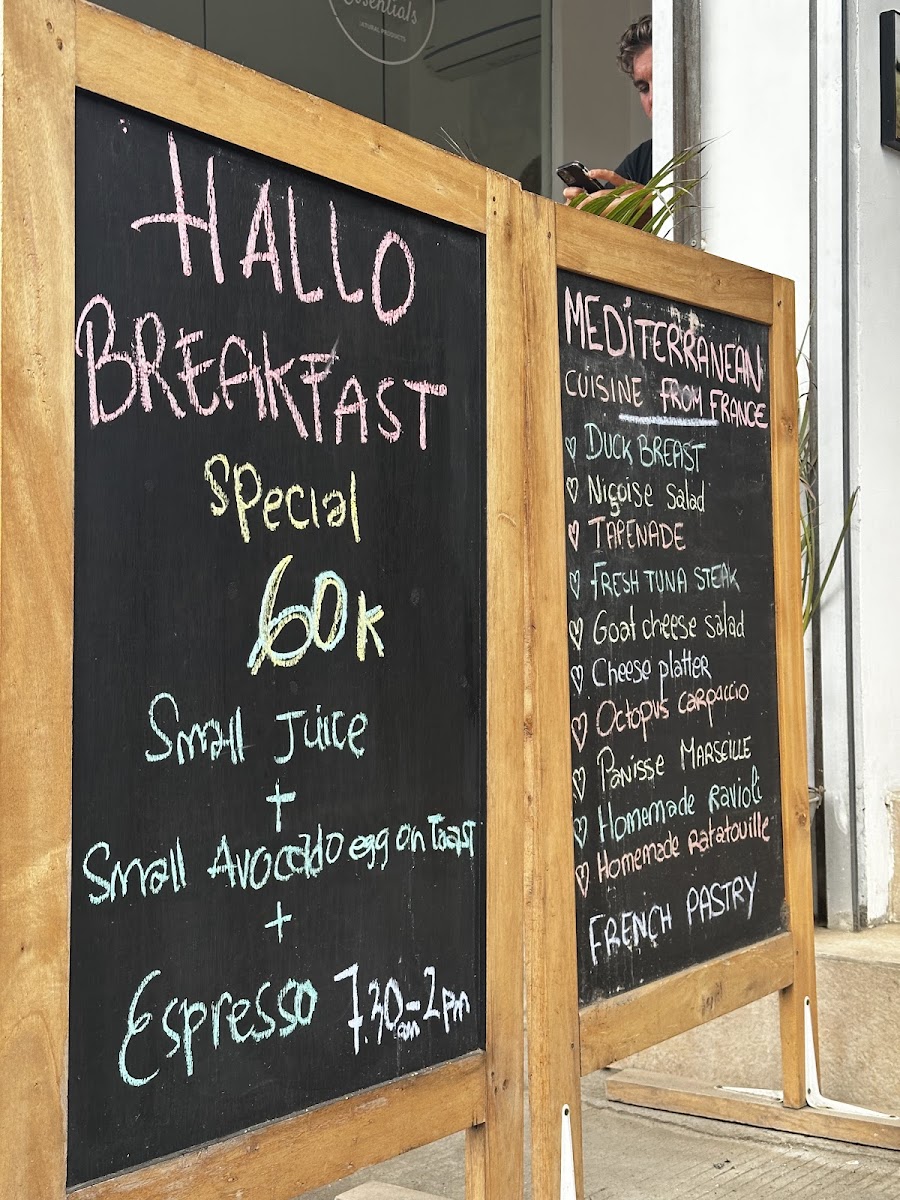 Essentials
NATURAL PRODUCTS
HALLO
BREAKFAST
special
60K
Small Juice
+
Small Avocado egg on Toast
+
Espresso 7.30am-2pm
MEDITERRANEAN
CUISINE FROM FRANCE
♡ DUCK BREAST
♡ Niçoise salad
♡ TAPENADE
♡ FRESH TUNA STEAK
♡ Goat cheese salad
♡ Cheese platter
♡ Octopus carpaccio
♡ Panisse MARSEILLE
♡ Homemade Ravioli
♡ Homemade Ratatouille
FRENCH PASTRY